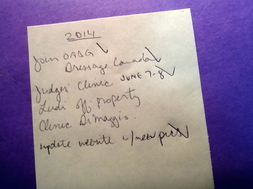 2014
Join OADG ✓
Dressage Canada ✓
Judges' Clinic JUNE 7-8 ✓
Ludi off Property
Clinic DiMaggio.
update website w/ new pics ✓